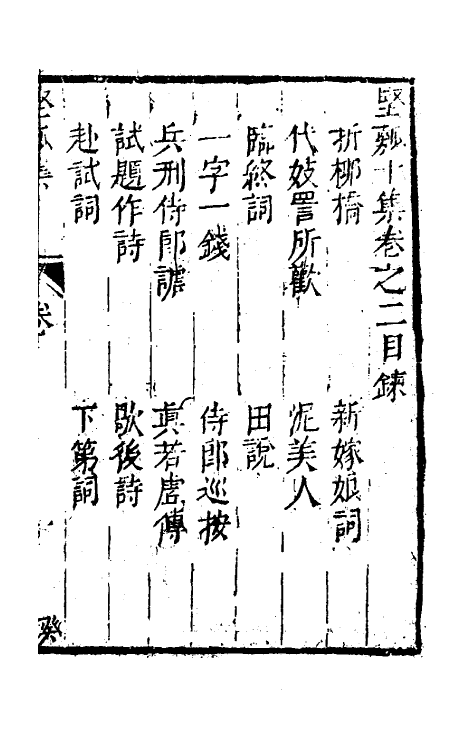 堅瓠十集卷之二目錄
折柳橋　新嫁娘詞
代妓詈所歡　泥美人
臨終詞　田說
一字一錢　侍郎巡按
兵刑侍郎謔　眞若虛傳
試題作詩　歇後詩
赴試詞　下第詞
堅瓠集　卷　癸